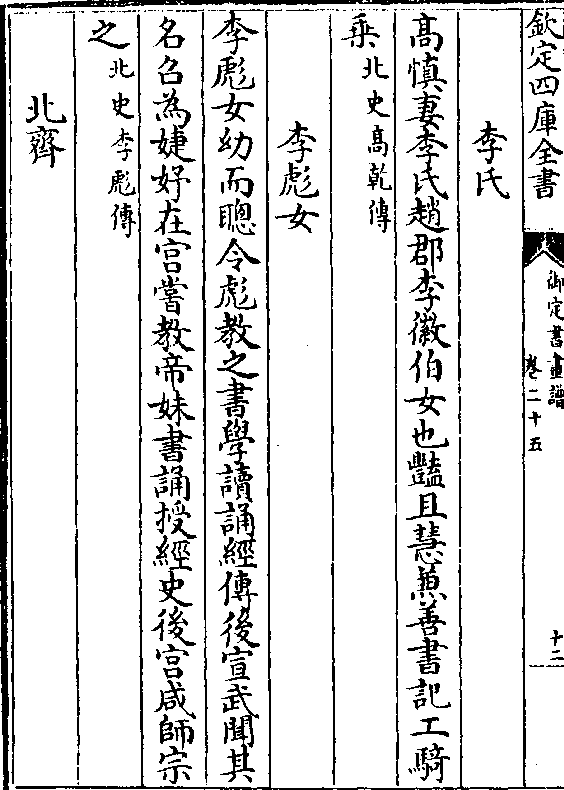 欽定四庫全書
御定書畫譜
卷二十五
十二
李氏
高慎妻李氏趙郡李徽伯女也豔且慧兼善書記工騎
乗北史高乾傳
李彪女
李彪女幼而聰令彪教之書學讀誦經傳後宣武聞其
名召為婕妤在宫嘗教帝妹書誦授經史後宫咸師宗
之北史李彪傳
北齊